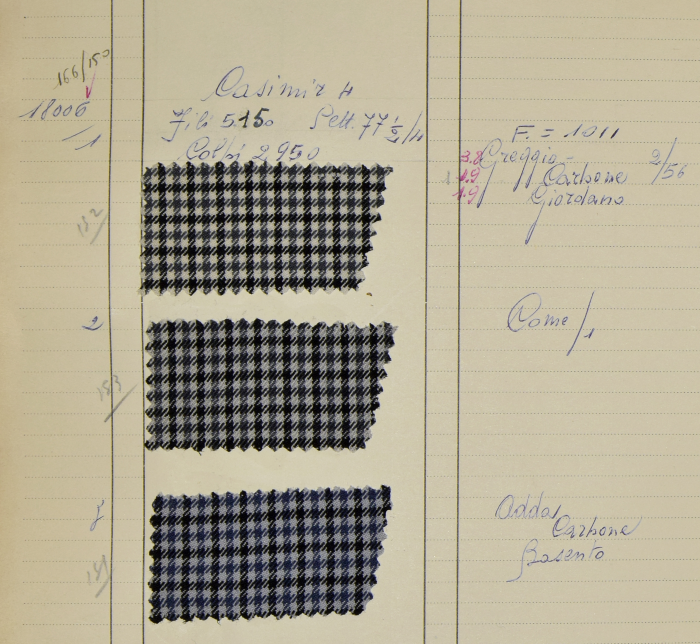 166/150
18006
Casimir 4
Fili 5.150 Pett. 77 1/2/4
/1
Colpi 2950
F. = 1011
3.8 Greggio - 2/56
1.9 Carbone
1.9 Giordano
152
2
Come /1
153
3
Adda
Carbone
Basento
151